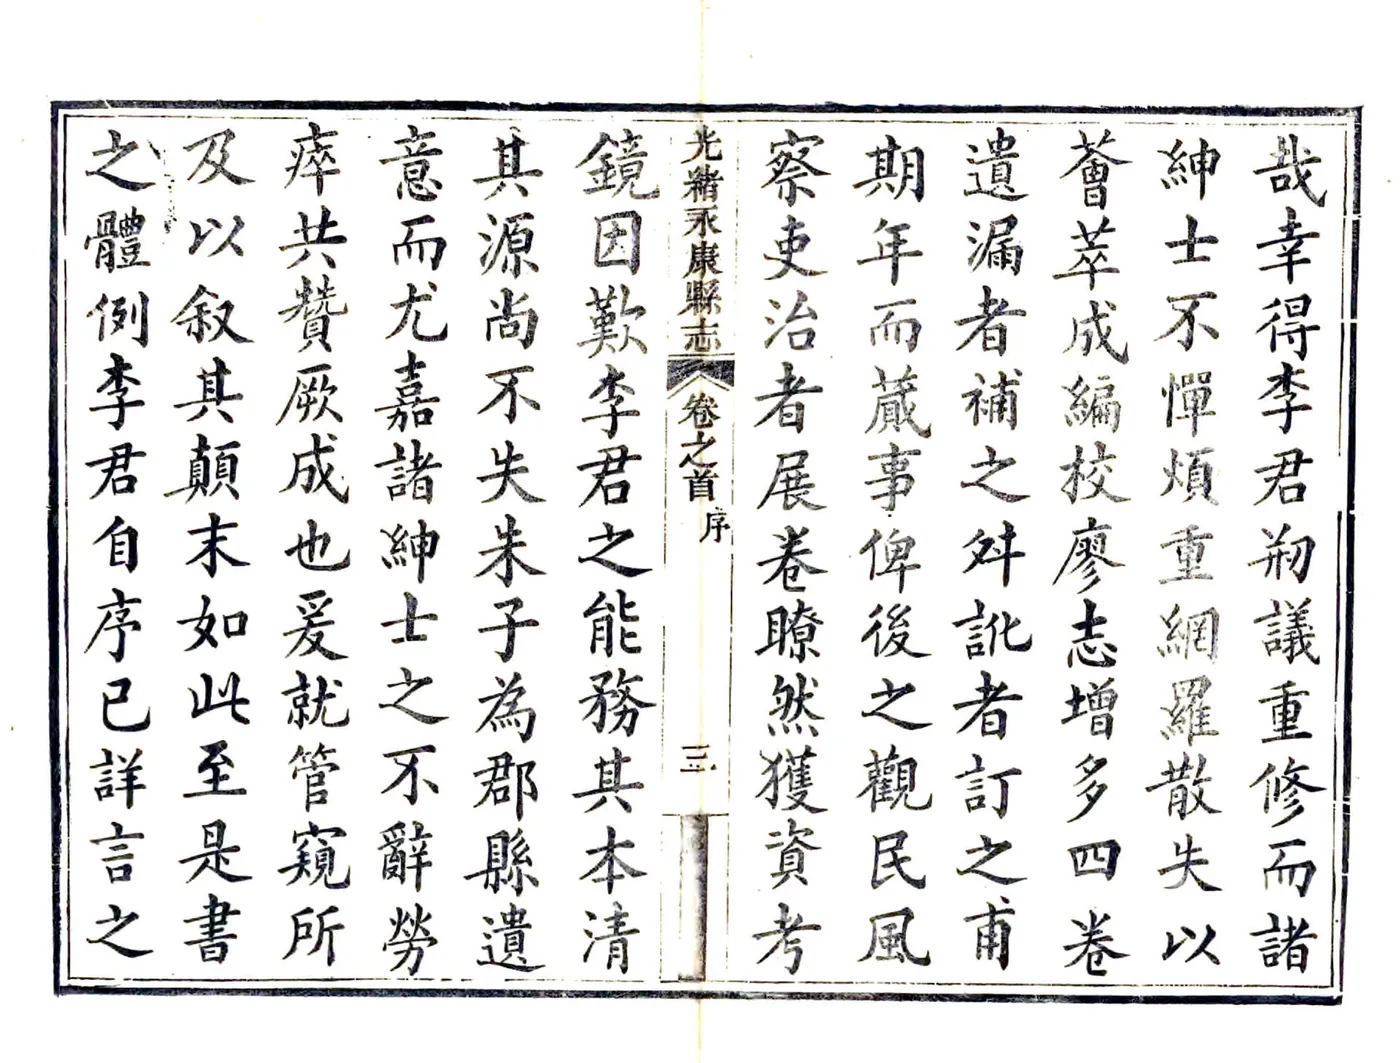 哉幸得李君刱議重修而諸
紳士不憚煩重網羅散失以
薈萃成編校廖志增多四卷
遺漏者補之舛訛者訂之甫
期年而蕆事俾後之觀民風
察吏治者展卷瞭然獲資考
光緒永康縣志
卷之首
序
三
鏡因歎李君之能務其本清
其源尚不失朱子為郡縣遺
意而尤嘉諸紳士之不辭勞
瘁共贊厥成也爰就管窺所
及以敘其顛末如此至是書
之體例李君自序已詳言之